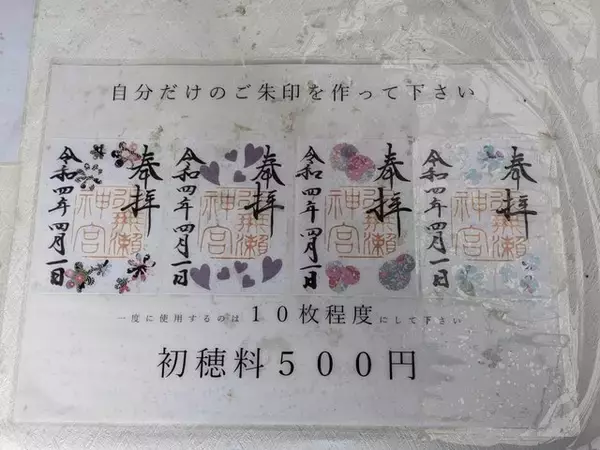 自分だけのご朱印を作って下さい
奉拝
瀬
神宮
令和四年四月一日
奉拝
瀬
神宮
令和四年四月一日
奉拝
瀬
神宮
令和四年四月一日
奉拝
瀬
神宮
令和四年四月一日
一度に使用するのは10枚程度にして下さい
初穂料500円